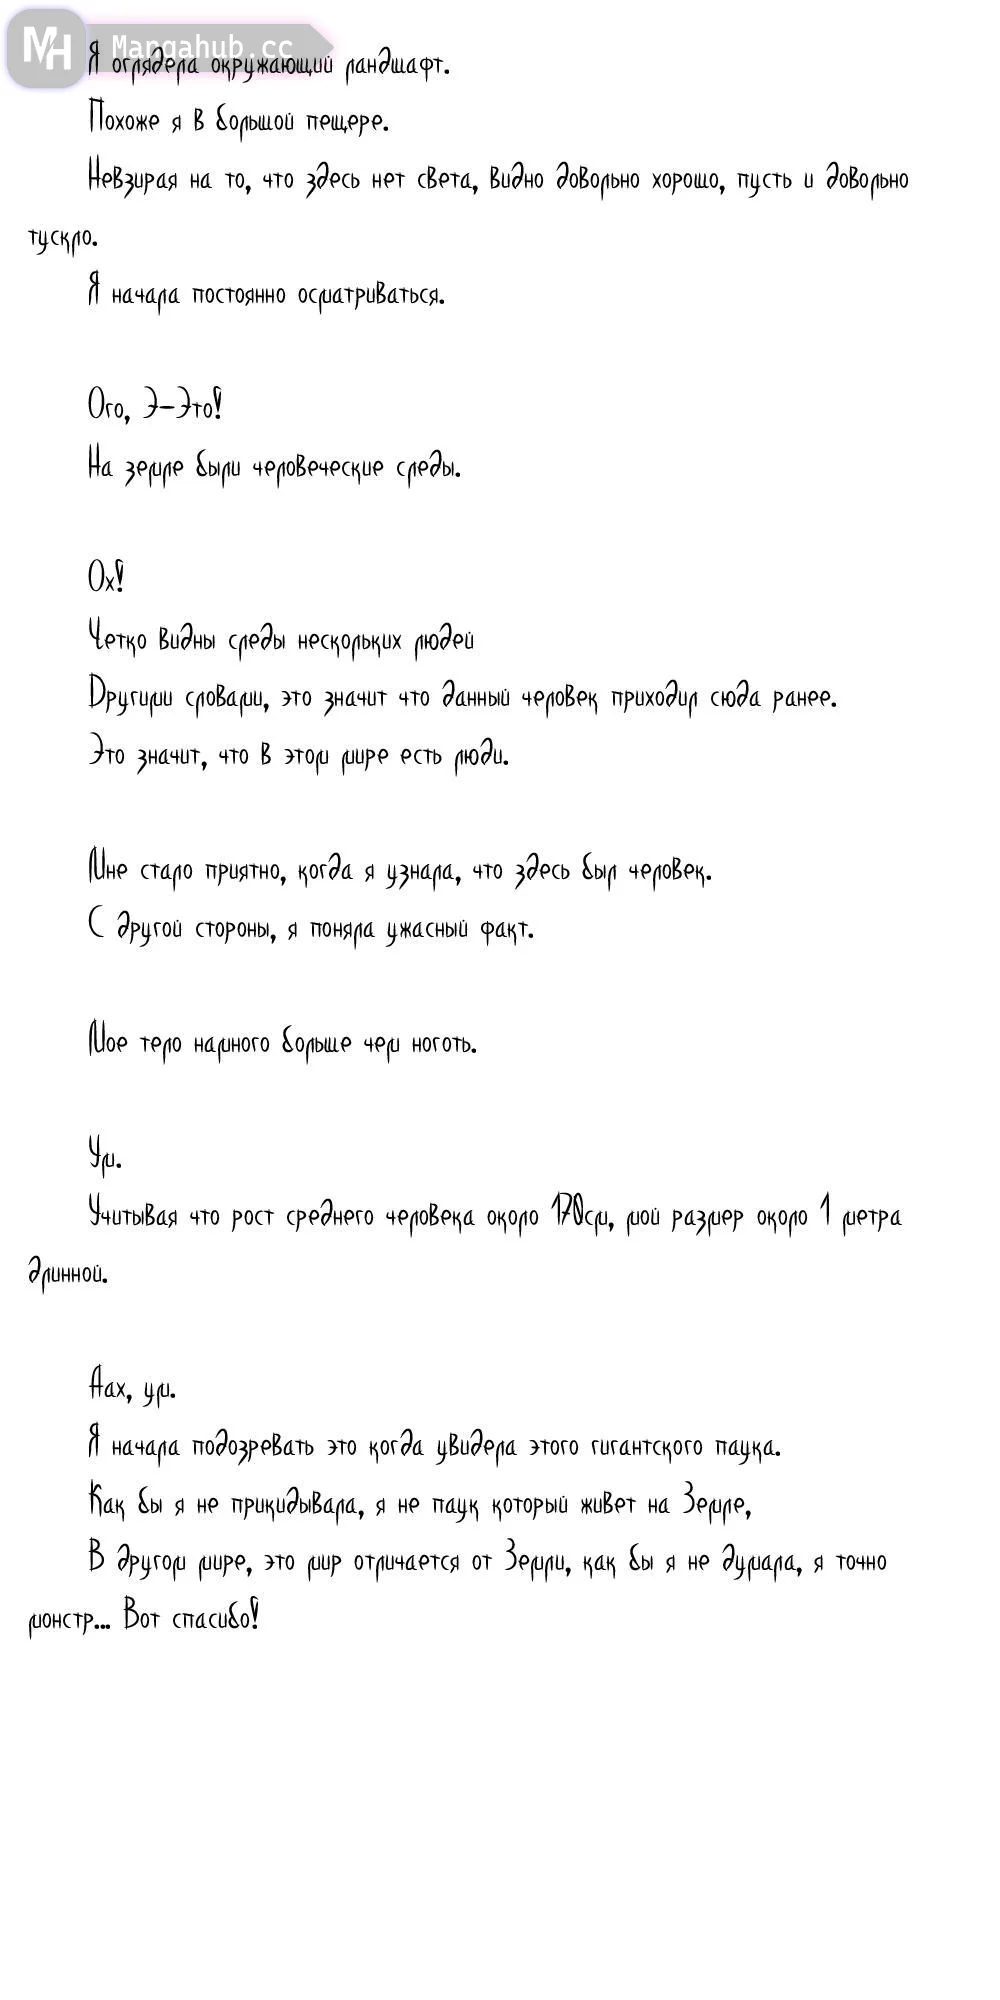 MH Mangahub.cc
Я оглядела окружающий ландшафт.
Похоже я в большой пещере.
Невзирая на то, что здесь нет света, видно довольно хорошо, пусть и довольно
тускло.
Я начала постоянно осматриваться.
Ого, Э-Это!
На земле были человеческие следы.
Ох!
Четко видны следы нескольких людей
Другими словами, это значит что данный человек приходил сюда ранее.
Это значит, что в этом мире есть люди.
Мне стало приятно, когда я узнала, что здесь был человек.
С другой стороны, я поняла ужасный факт.
Мое тело намного больше чем ноготь.
Ум.
Учитывая что рост среднего человека около 170см, мой размер около 1 метра
длинной.
Аах, ум.
Я начала подозревать это когда увидела этого гигантского паука.
Как бы я не прикидывала, я не паук который живет на Земле,
В другом мире, это мир отличается от Земли, как бы я не думала, я точно
монстр... Вот спасибо!